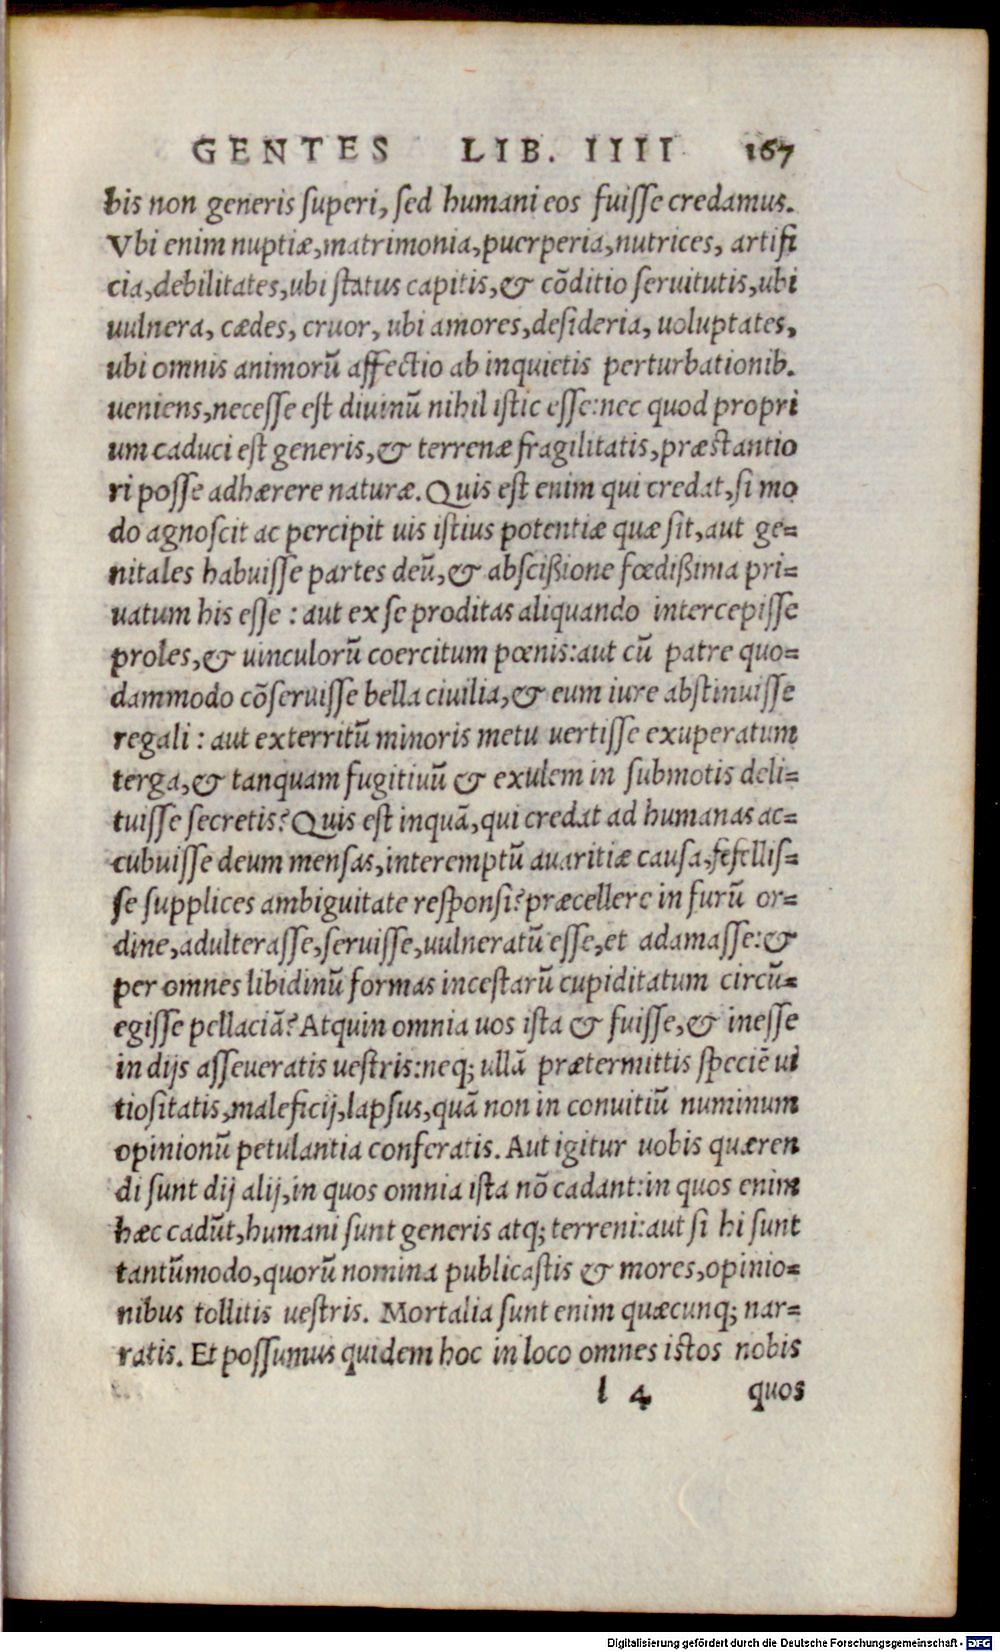 GENTES LIB. IIII 167
bis non generis superi, sed humani eos fuisse credamus.
Vbi enim nuptiæ, matrimonia, puerperia, nutrices, artifi
cia, debilitates, ubi status capitis, & cõditio seruitutis, ubi
uulnera, cædes, cruor, ubi amores, desideria, uoluptates,
ubi omnis animorũ affectio ab inquietis perturbationib.
ueniens, necesse est diuinũ nihil istic esse: nec quod propri
um caduci est generis, & terrenæ fragilitatis, præstantio
ri posse adhærere naturæ. Quis est enim qui credat, si mo
do agnoscit ac percipit uis istius potentiæ quæ sit, aut ge=
nitales habuisse partes deũ, & abscißione fœdißima pri=
uatum his esse : aut ex se proditas aliquando intercepisse
proles, & uinculorũ coercitum pœnis: aut cũ patre quo=
dammodo cõseruisse bella ciuilia, & eum iure abstinuisse
regali : aut exterritũ minoris metu uertisse exuperatum
terga, & tanquam fugitiuũ & exulem in submotis deli=
tuisse secretis? Quis est inquã, qui credat ad humanas ac=
cubuisse deum mensas, interemptũ auaritiæ causa, fefellis=
se supplices ambiguitate responsi? præcellere in furũ or=
dine, adulterasse, seruisse, uulneratũ esse, et adamasse: &
per omnes libidinũ formas incestarũ cupiditatum circũ=
egisse pellaciã? Atquin omnia uos ista & fuisse, & inesse
in dijs asseueratis uestris: neq; ullã prætermittis speciẽ ui
tiositatis, maleficij, lapsus, quã non in conuitiũ numinum
opinionũ petulantia conferatis. Aut igitur uobis quæren
di sunt dij alij, in quos omnia ista nõ cadant: in quos enim
hæc cadũt, humani sunt generis atq; terreni: aut si hi sunt
tantũmodo, quorũ nomina publicastis & mores, opinio=
nibus tollitis uestris. Mortalia sunt enim quæcunq; nar=
ratis. Et possumus quidem hoc in loco omnes istos nobis
l 4 quos
Digitalisierung gefördert durch die Deutsche Forschungsgemeinschaft - DFG